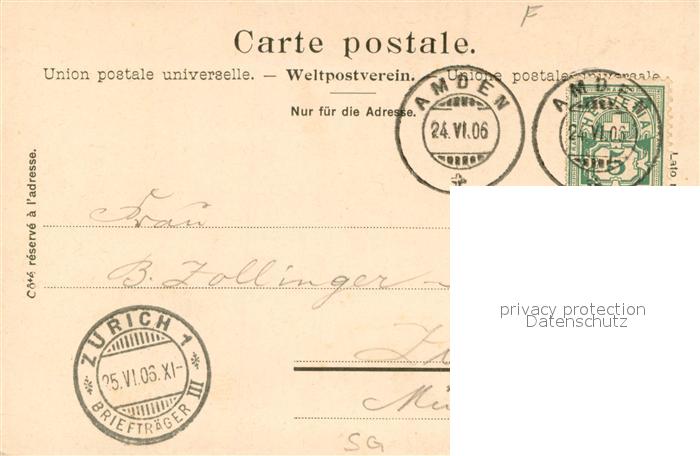 F
Carte postale.
Union postale universelle. — Weltpostverein. — Unione postale universale.
Nur für die Adresse.
AMDEN
24.VI.06
AMDEN
24.VI.06
HELVETIA
5
Côté réservé à l'adresse.
Lato
Frau
B. Zollinger –
ZÜRICH 1
25.VI.06.XI–
BRIEFTRÄGER III
SG
privacy protection
Datenschutz